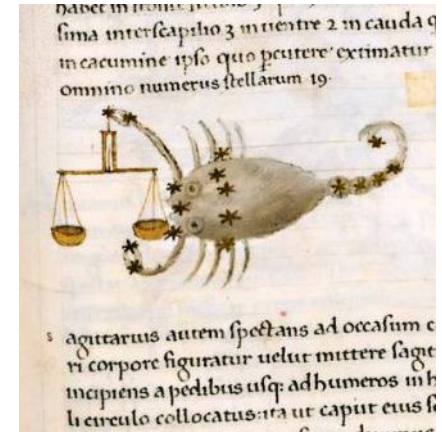 habet in
sima interscapilio 3 in uentre 2 in cauda
in cacumine ipso quo pcutere extimatur
omnino numerus stellarum 19.
s agittarius autem spectans ad occasum
ri corpore figuratur uelut mittere sagit
incipiens a pedibus usq; ad humeros in
li circulo collocatus: ita ut caput eius